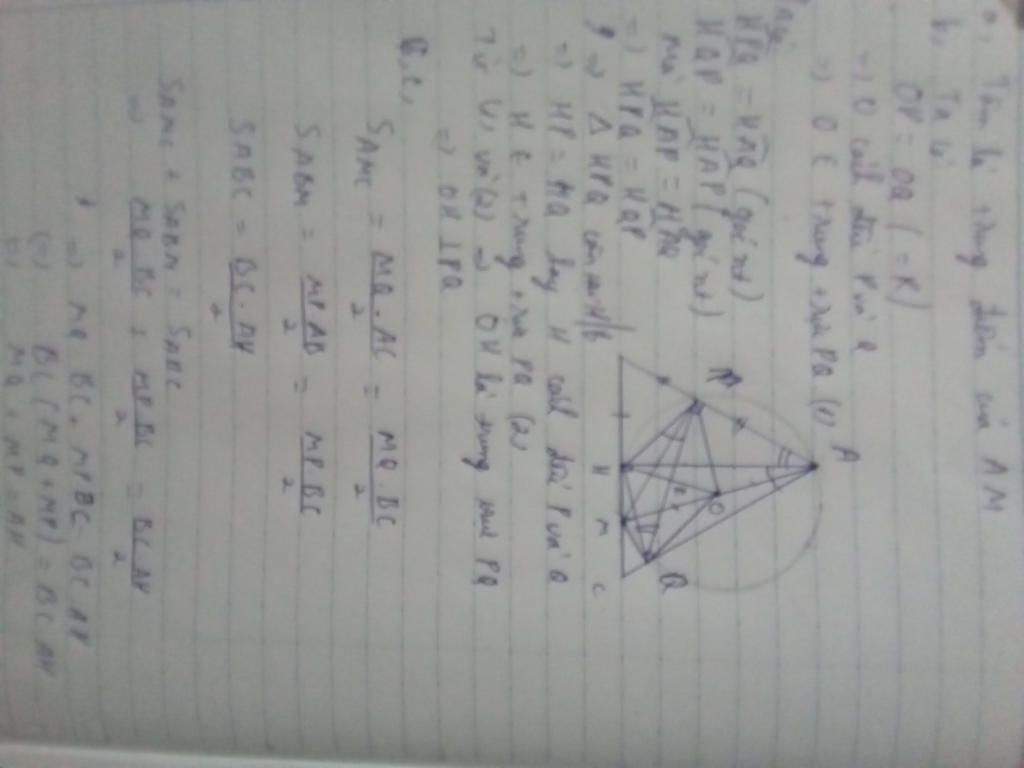 a, Tâm là trung điểm của AM
b, Ta có
OP = OQ (= R)
=> O cách đều P và Q
=> O ∈ trung trực PQ (1)
HPQ = HAQ (góc nt)
HQP = HAP (góc nt)
mà HAP = HAQ
=> HPQ = HQP
=> Δ HPQ cân tại H
=> HP = HQ hay H cách đều P và Q
=> H ∈ trung trực PQ (2)
Từ (1) và (2) => OH là trung trực PQ
=> OH ⊥ PQ
c,
SAMC = MQ.AC / 2 = MQ.BC / 2
SABM = MP.AB / 2 = MP.BC / 2
SABC = BC.AH / 2
SAMC + SABM = SABC
=> MQ.BC / 2 + MP.BC / 2 = BC.AH / 2
=> MQ.BC + MP.BC = BC.AH
<=> BC (MQ + MP) = BC.AH
=> MQ + MP = AH
A
P
O
Q
B
H
M
C